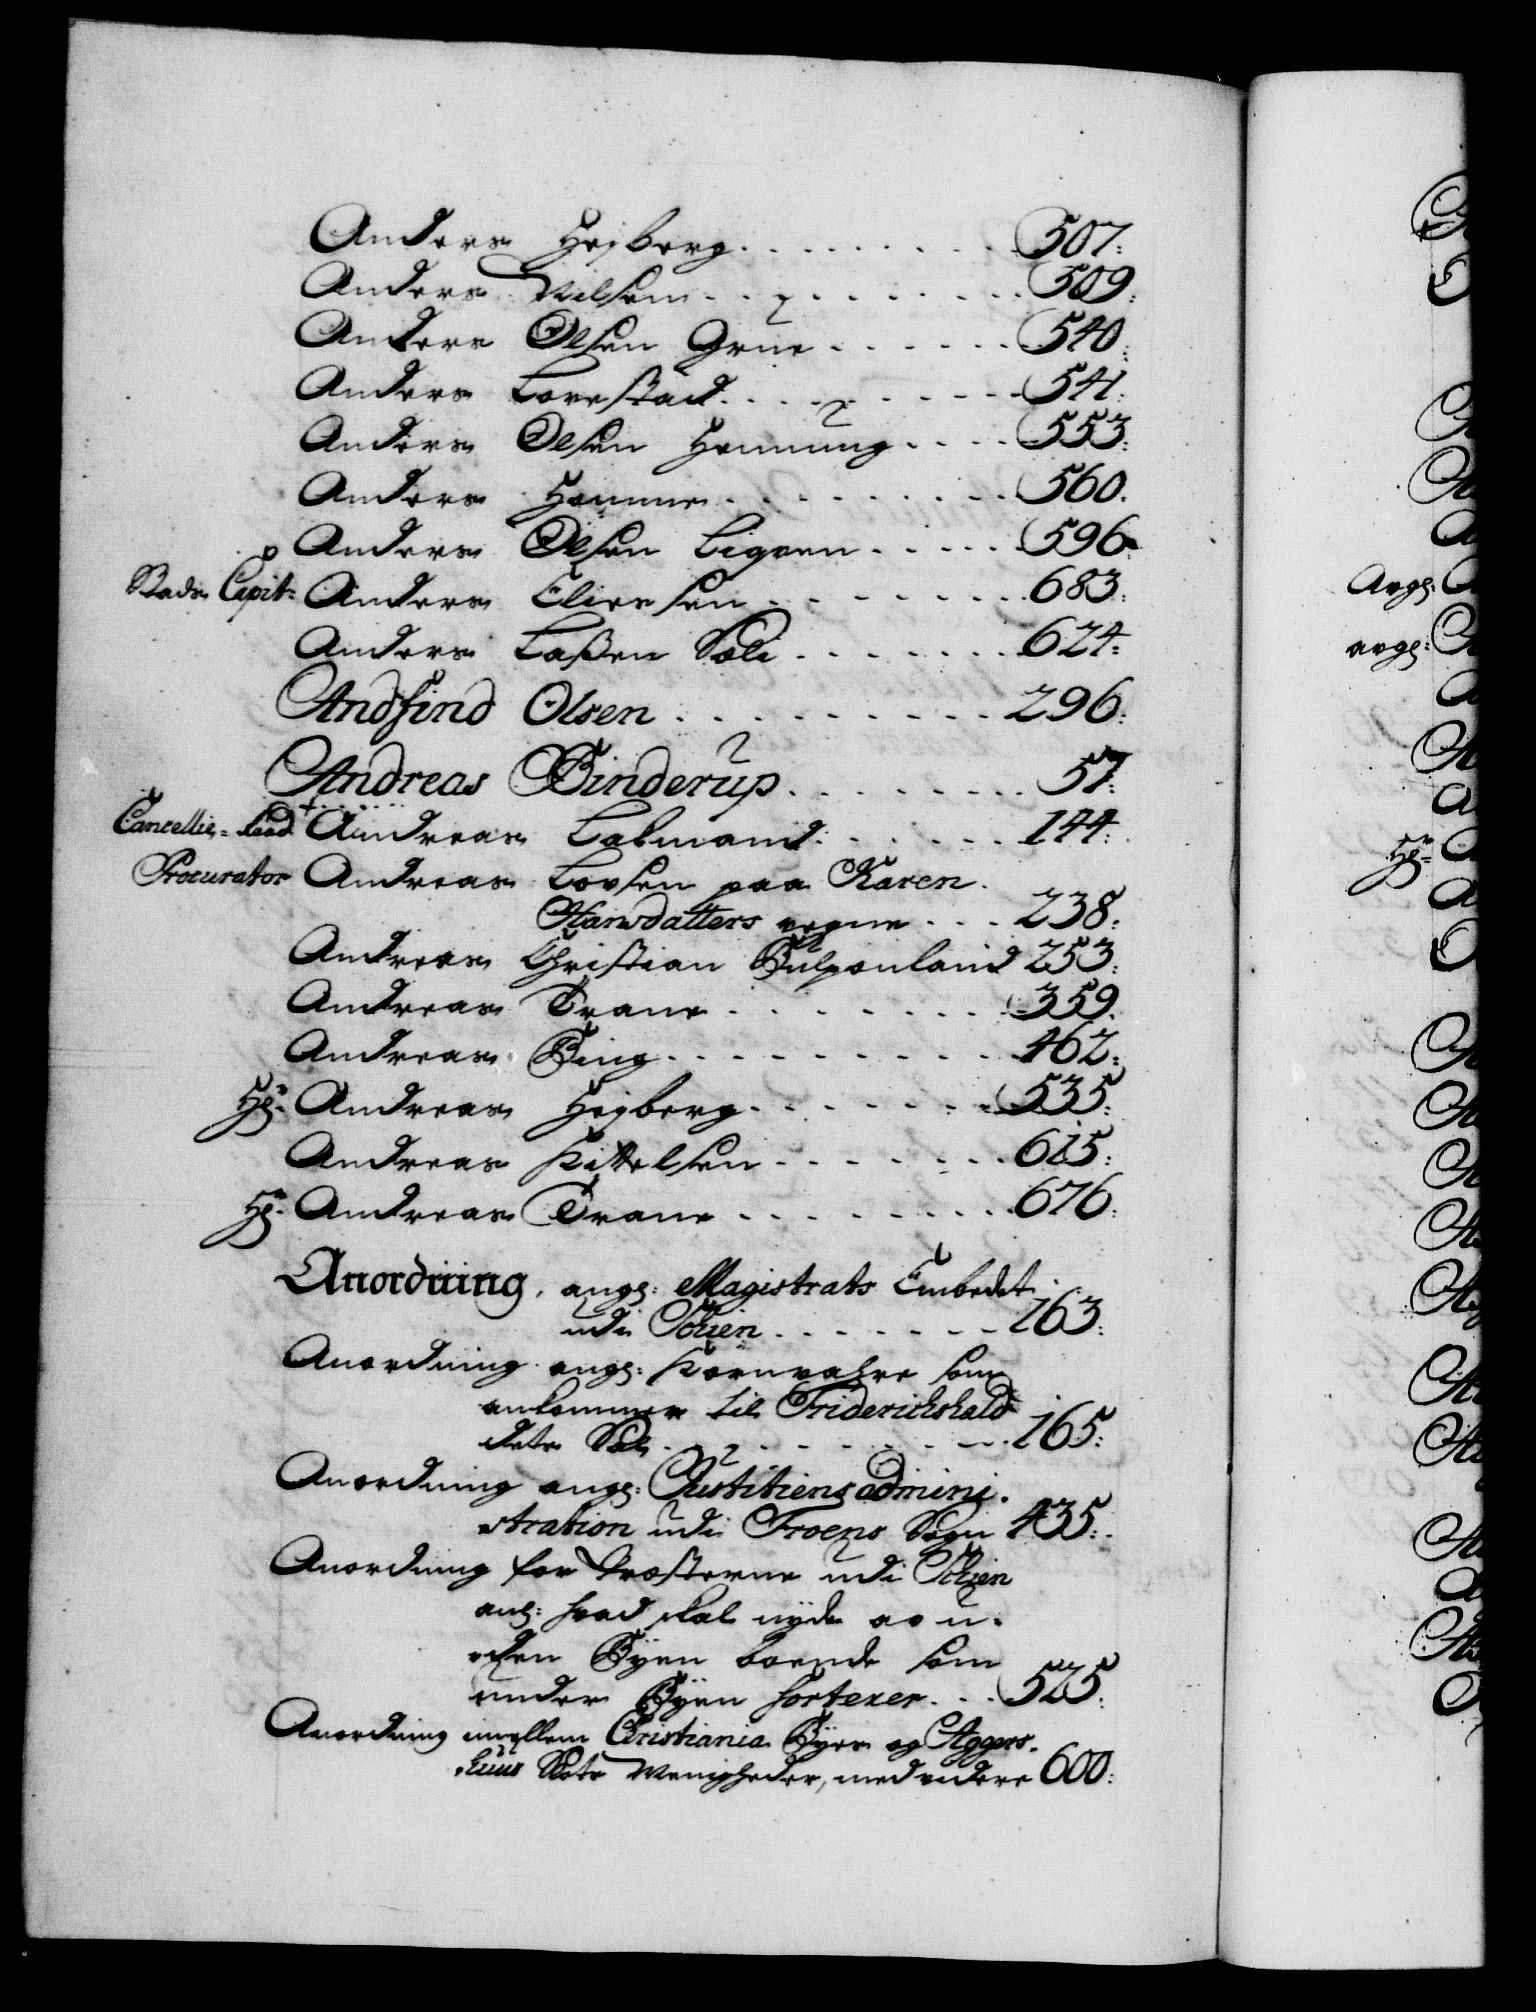 Anders Heÿberg . . . . . . . . . 507:
Anders Nilsen . . . . . . . . . 509:
Anders Olsen Grue . . . . . . 540:
Anders Lovestad . . . . . . . . 541:
Anders Olsen Hennung . . . . 553:
Anders Hemme . . . . . . . . . 560.
Anders Olsen Ligven . . . . . 596
Stads Capit: Anders Eliersen . . . . . . . 683:
Anders Laßen Søli . . . . . . . 624:
Andfind Olsen . . . . . . . . . 296:
Andreas Binderup . . . . . . . . 57:
Cancellie-Raad Andreas Lalmand . . . . . . 144:
Procurator Andreas Lovsen paa Karen
Harwdatters vegne . . . 238:
Andreas Christian 253:
Andreas Trane . . . . . . . . 359.
Andreas Bing . . . . . . . . . . 462:
Hr. Andreas Heÿberg . . . . . . . 535:
Andreas Kittelsen . . . . . . . 615:
Hr. Andreas Trane . . . . . . . . 676:
Anordning, ang: Magistrats Embedet
udi Schien . . . . . . . 163:
Anordning ang: Kornvahre som
ankommer til Friderichshald
dets . . . . . . . 165:
Anordning ang: Justitiens admini-
stration udi Froens Sogn 435:
Anordning for Præsterne udi Schien
ang: hvad skal nyde av u-
den Bÿen boende som
under Bÿen sorterer . . . 525:
Anordning imellem Christiania Bÿes og Aggers-
huus Slots Menigheder, med videre 600: